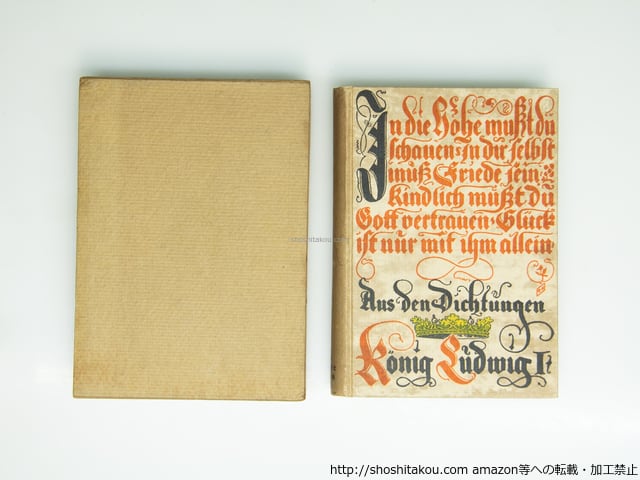 In die Höhe mußt du
schauen: In dir selbst
muß Friede sein:
Kindlich mußt du
Gott vertrauen: Glück
ist nur mit ihm allein
Aus den Dichtungen
König Ludwig I.
shoshitakou.com
http://shoshitakou.com amazon等への転載・加工禁止